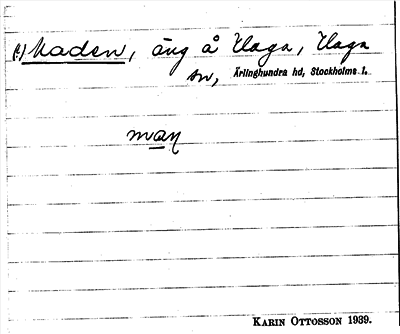 (?) Maden, äng å Haga, Haga
sn, Ärlinghundra hd, Stockholms l.
man
KARIN OTTOSSON 1939.